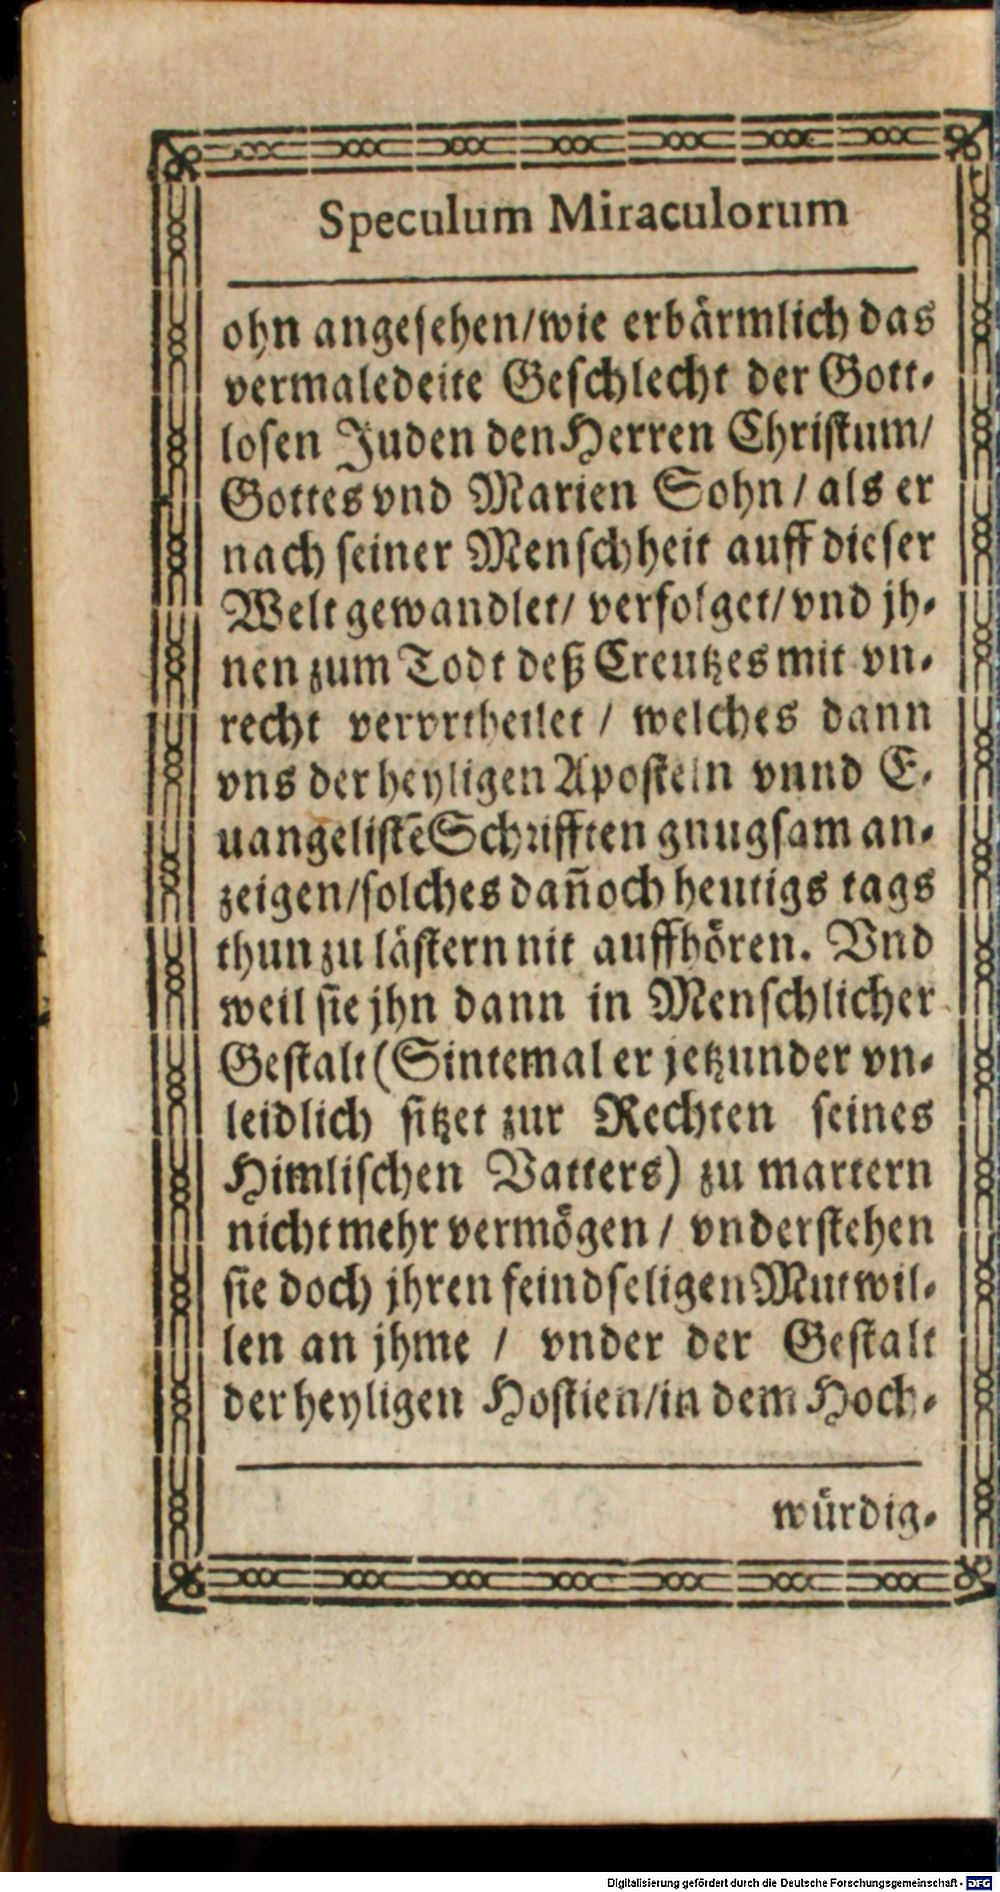 Speculum Miraculorum
ohn angesehen/wie erbärmlich das
vermaledeite Geschlecht der Gott-
losen Juden den Herren Christum/
Gottes vnd Marien Sohn / als er
nach seiner Menschheit auff dieser
Welt gewandlet/ verfolget/vnd jh-
nen zum Todt deß Creutzes mit vn-
recht vervrtheilet / welches dann
vns der heyligen Aposteln vnnd E-
uangelistē Schrifften gnugsam an-
zeigen/solches dañoch heutigs tags
thun zu lästern nit auffhören. Vnd
weil sie jhn dann in Menschlicher
Gestalt (Sintemal er jetzunder vn-
leidlich sitzet zur Rechten seines
Himlischen Vatters) zu martern
nicht mehr vermögen / vnderstehen
sie doch jhren feindseligen Mutwil-
len an jhme / vnder der Gestalt
der heyligen Hostien/in dem Hoch-
würdig-
Digitalisierung gefördert durch die Deutsche Forschungsgemeinschaft - DFG